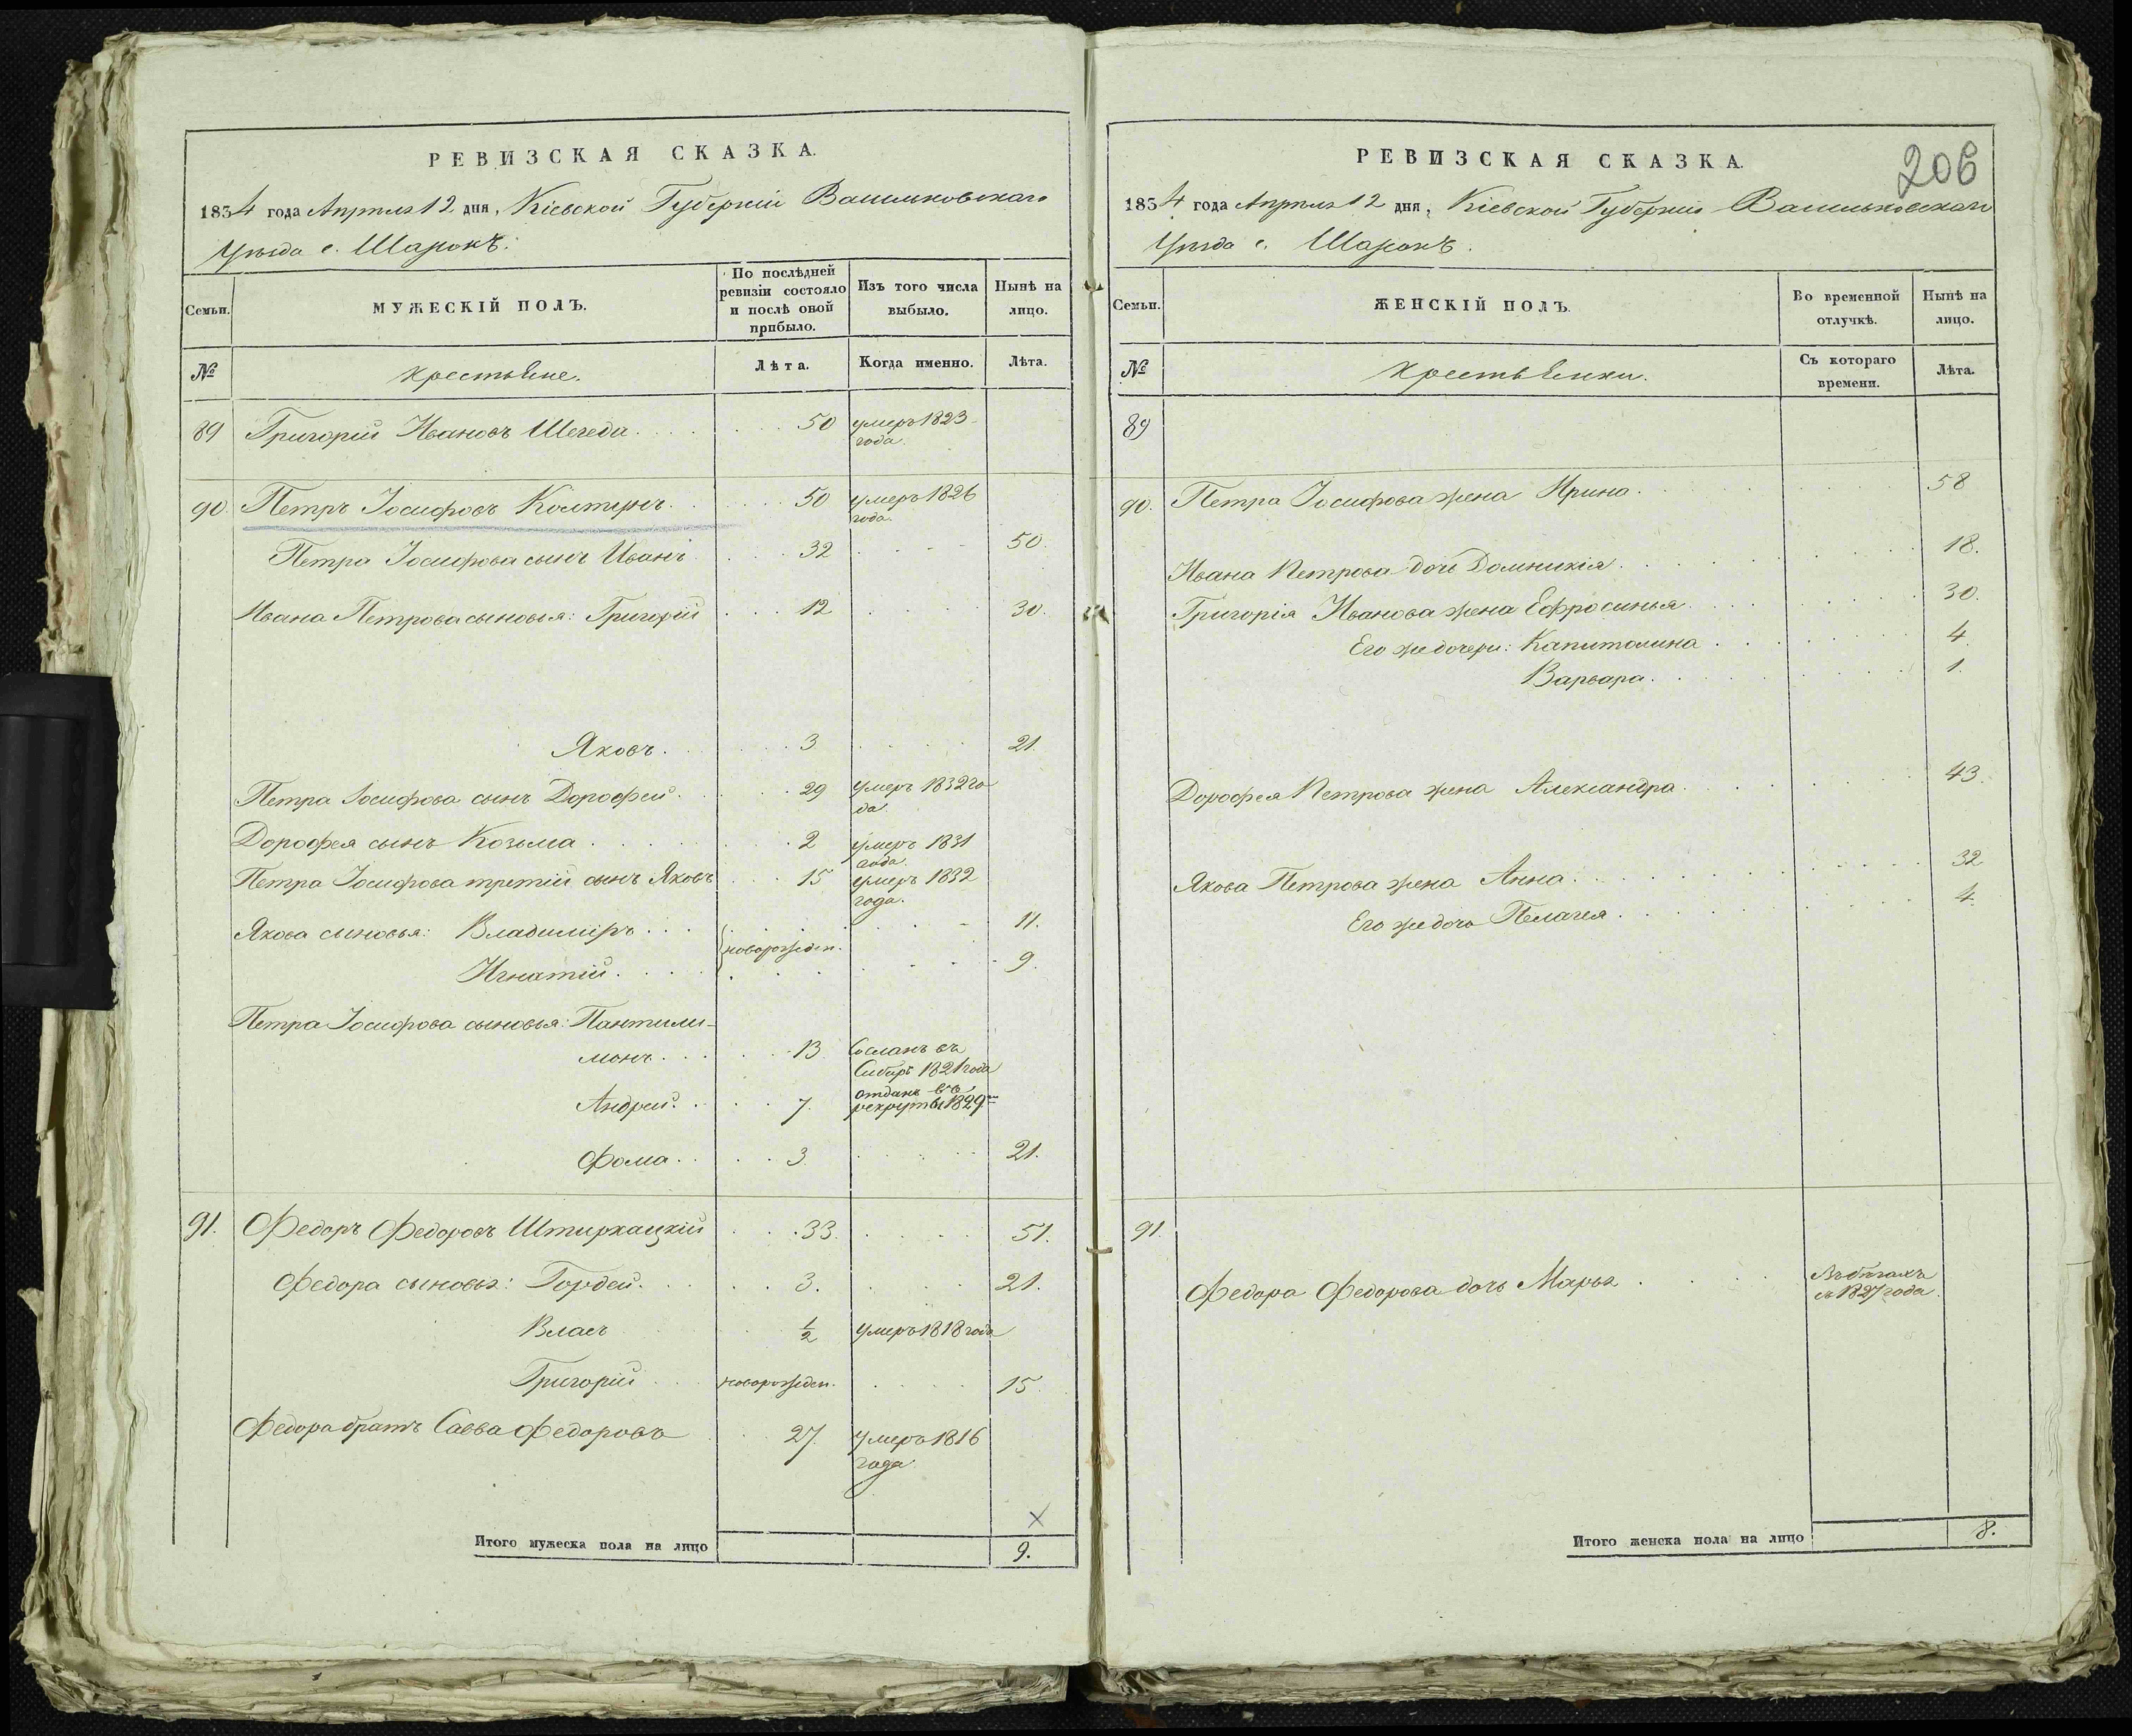 РЕВИЗСКАЯ СКАЗКА.
1834 года Апрѣля 12 дня, Кіевской Губерніи Васильковскаго
Уѣзда с.
Семьи.
МУЖЕСКІЙ ПОЛЪ.
По послѣдней ревизіи состояло и послѣ оной прибыло.
Изъ того числа выбыло.
Нынѣ на лицо.
№
Крестьяне.
Лѣта.
Когда именно.
Лѣта.
89 Григорій Ивановъ Шегеда 50 умеръ 1823
года.
90. Петръ Іосифовъ 50 умеръ 1826
года.
Петра Іосифова сынъ Иванъ 32 50.
Ивана Петрова сыновья: Григорій 12 30.
Яковъ. 3 21.
Петра Іосифова сынъ Дорофей. 29 умеръ 1832 го
да.
Дорофея сынъ Козьма 2 умеръ 1831
года.
Петра Іосифова третій сынъ Яковъ 15 умеръ 1832
года.
Якова сыновья: Владиміръ 11.
новорожден.
Игнатій. 9.
Петра Іосифова сыновья: Пантили-
монъ. 13 Сосланъ въ
Сибирь 1821 года
Андрей. 7. отданъ въ
рекруты 1829
Фома. 3. 21.
91. Федоръ Федоровъ Штиркацкій 33. 51.
Федора сыновья: Гордей. 3. 21.
Власъ 1/2 умеръ 1818 года
Григорій новорожден. 15.
Федора братъ Савва Федоровъ 27. умеръ 1816
года
х
Итого мужеска пола на лицо 9.
206
РЕВИЗСКАЯ СКАЗКА.
1834 года Апрѣля 12 дня, Кіевской Губерніи Васильковскаго
Уѣзда с.
Семьи.
ЖЕНСКІЙ ПОЛЪ.
Во временной отлучкѣ.
Нынѣ на лицо.
№
Крестьянки.
Съ котораго времени.
Лѣта.
89
90. Петра Іосифова жена Ирина. 58
Ивана Петрова дочь Домникія. 18.
Григорія Иванова жена Ефросинья. 30.
Его же дочери: Капитолина 4.
Варвара. 1.
Дорофея Петрова жена Александра. 43.
Якова Петрова жена Анна. 32
Его же дочь Пелагея. 4.
91.
Федора Федорова дочь Марья Въ бѣгахъ
съ 1827 года.
Итого женска пола на лицо 8.